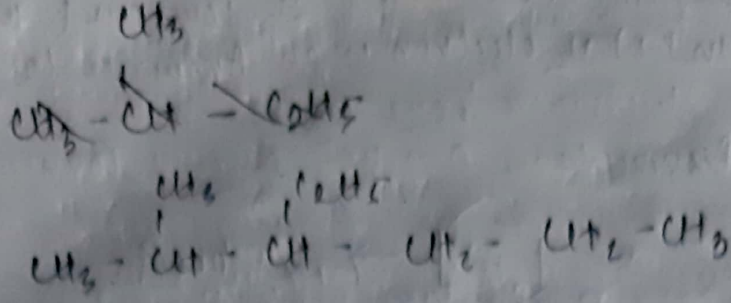 CH3
CH3 - CH - C2H5
CH3 C2H5
CH3 - CH - CH - CH2 - CH2 - CH3